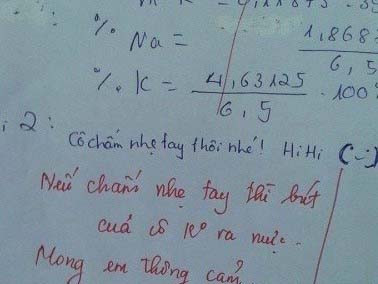 % Na = 1,868
6,5
% K = 4,63125 . 100%
6,5
2 :
Cô chấm nhẹ tay thôi nhé! HiHi (-:)
Nếu chấm nhẹ tay thì bút
của cô ko ra mực.
Mong em thông cảm